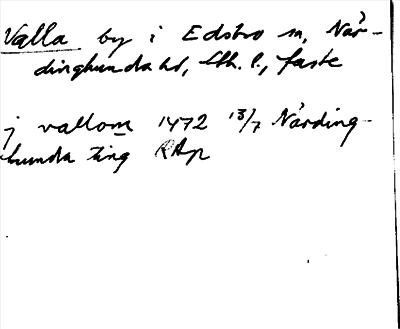 Valla by i Edsbro sn, När-
dinghundra hd, Sth. l., faste
j vallom 1472 13/7 Närding-
hundra ting RAp